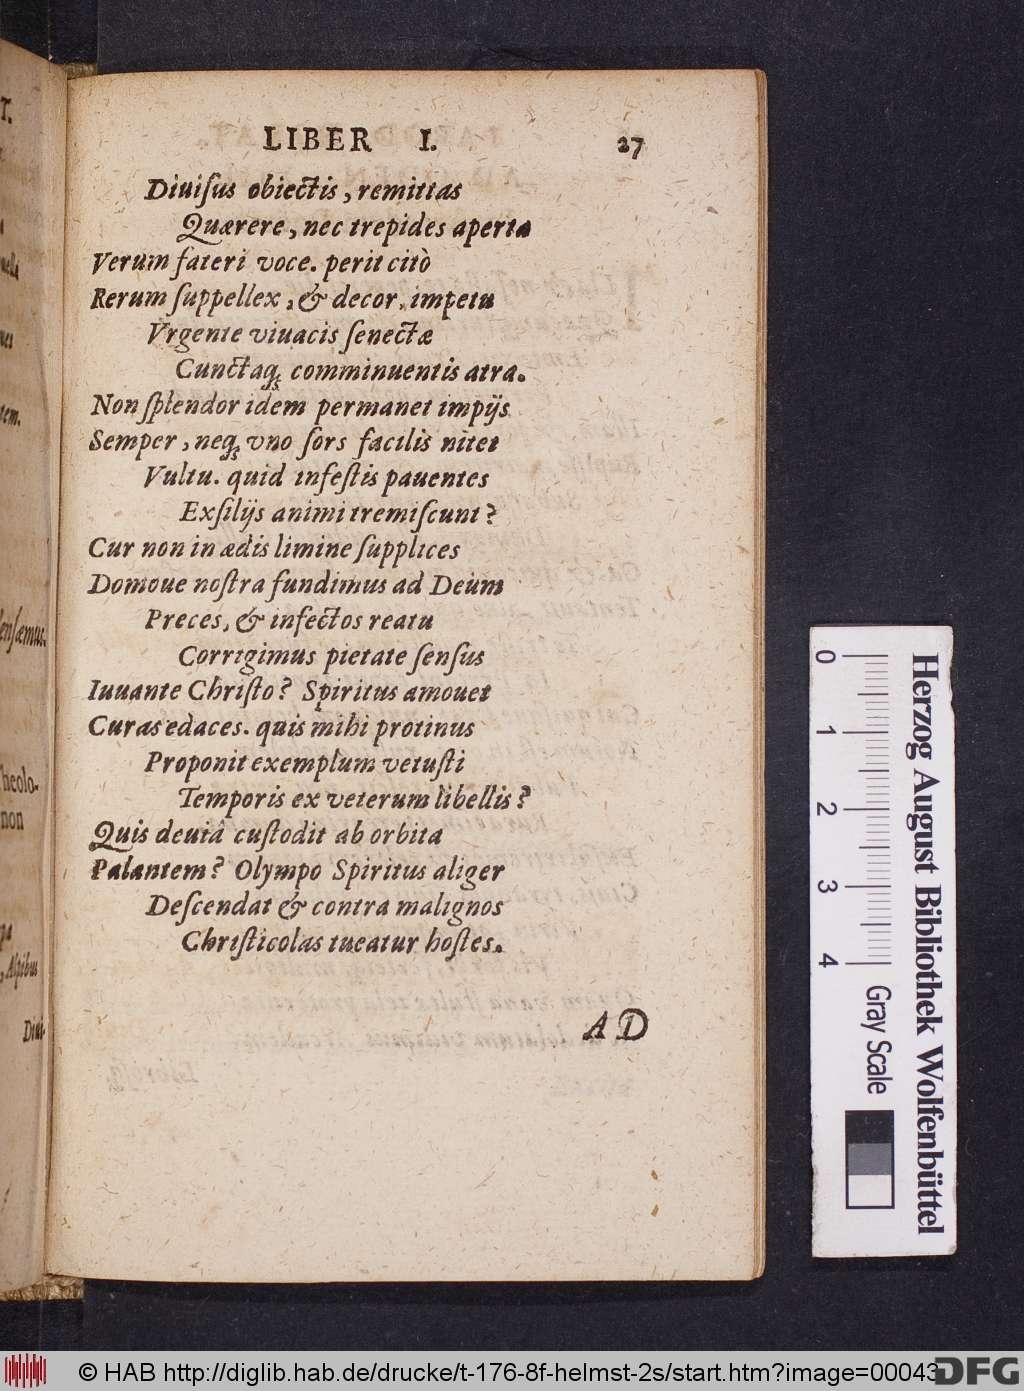 LIBER I. 27
Diuiſus obiectis, remittas
Quærere, nec trepides aperta
Verum fateri voce. perit citò
Rerum ſuppellex, & decor, impetu
Vrgente viuacis ſenectæ
Cunctaq; comminuentis atra.
Non ſplendor idem permanet impijs
Semper, neq; vno ſors facilis nitet
Vultu. quid infeſtis pauentes
Exſilijs animi tremiſcunt?
Cur non in ædis limine ſupplices
Domoue noſtra fundimus ad Deum
Preces, & infectos reatu
Corrigimus pietate ſenſus
Iuuante Chriſto? Spiritus amouet
Curas edaces. quis mihi protinus
Proponit exemplum vetuſti
Temporis ex veterum libellis?
Quis deuiâ cuſtodit ab orbita
Palantem? Olympo Spiritus aliger
Deſcendat & contra malignos
Chriſticolas tueatur hoſtes.
AD
T.
tem.
enſæmus.
heolo-
non
Alpibus
Diui-
0 1 2 3 4
Gray Scale
Herzog August Bibliothek Wolfenbüttel
© HAB http://diglib.hab.de/drucke/t-176-8f-helmst-2s/start.htm?image=00043
DFG